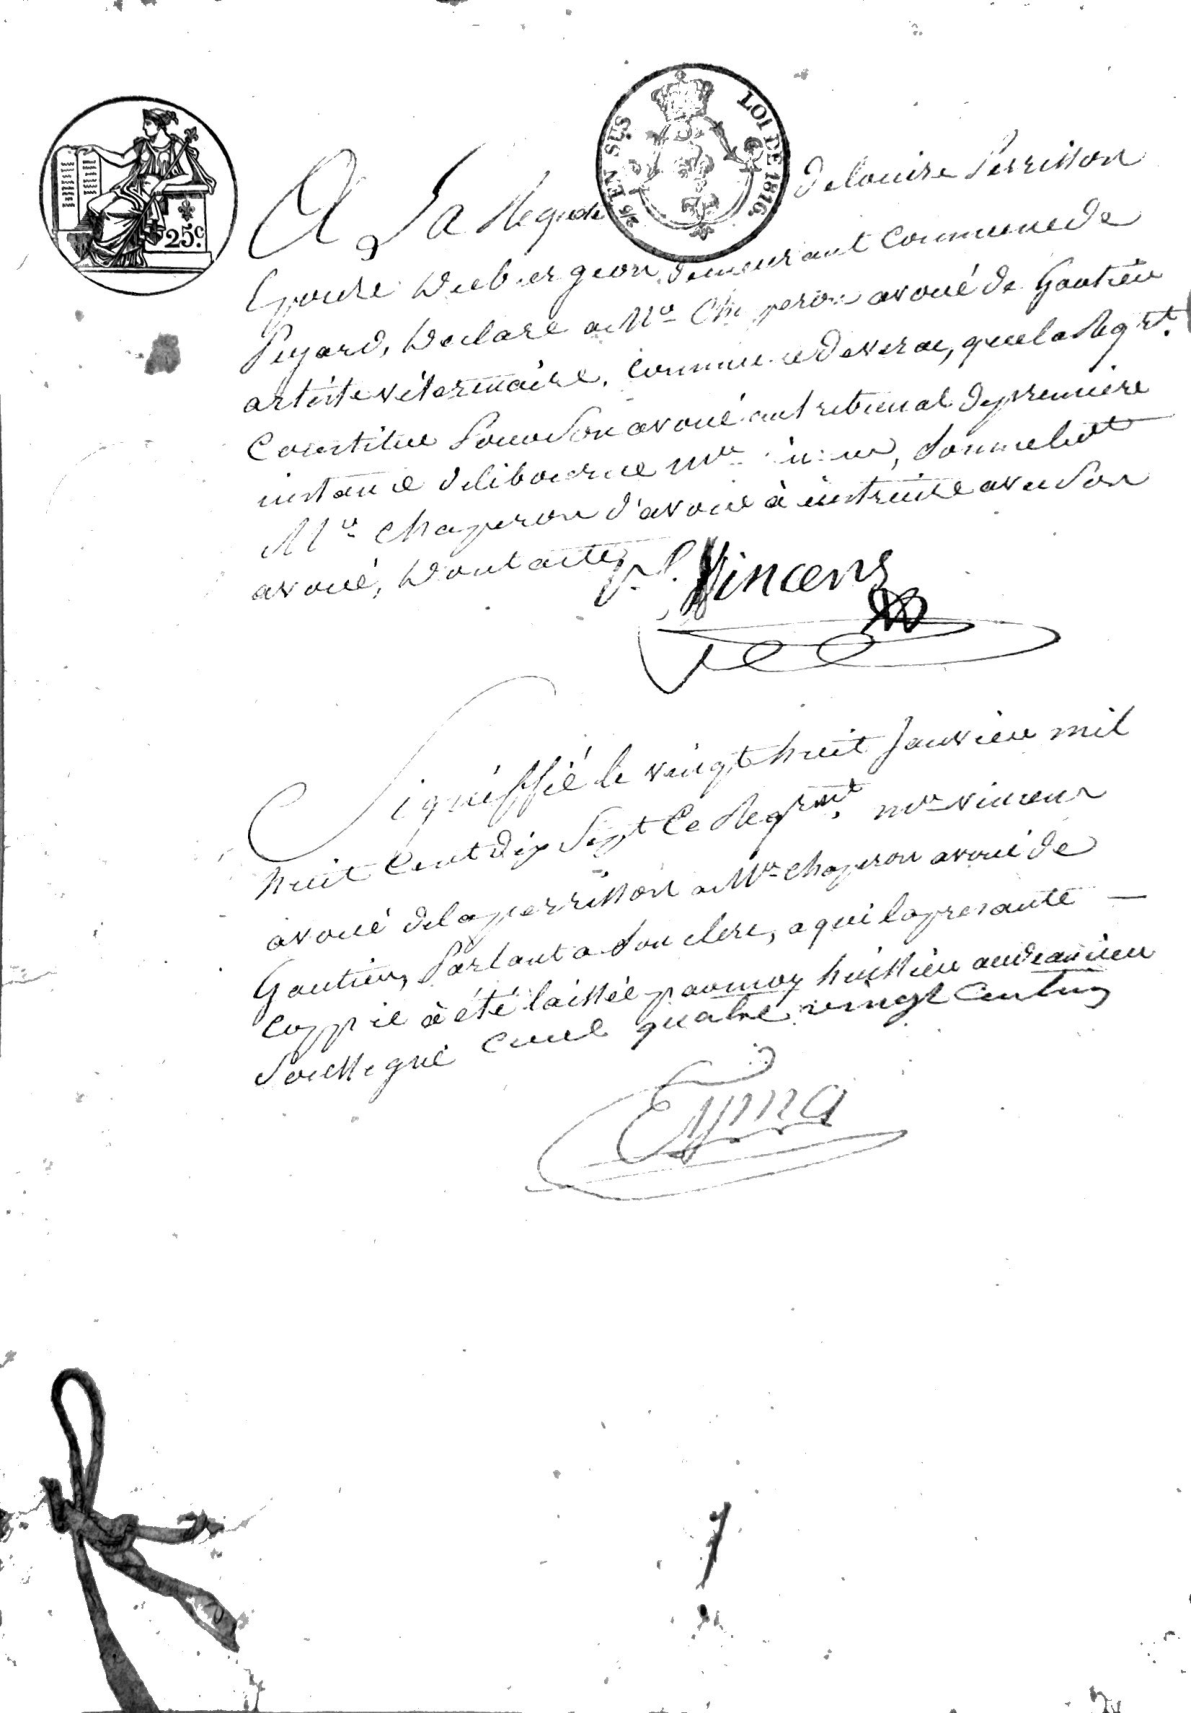 25c.
2/5 EN SUS
LOI DE 1816.
A La Requete de louise Perrisson
Epouse Dubergeon, demeurant Commune de
Puyard, Declare a Me Chaperon avoué de Gautier
artiste véterinaire, Commune deverac, que la Reqrt.
Constitue Pour Son avoué au tribunal de premiere
instance de libourne Me vincens, Somme ledt
Me Chaperon d'avoir à instruire avec Son
avoué, Dont acte
Vincens
Signiffié le vingt huit Janvier mil
huit Cent dix Sept Ce Reqrant. Me vincens
avoué de la perrisson a Me Chaperon avoué de
Gautier, Parlant a Son clerc, a qui la presante
Coppie à été laissée par moy huissier audiancier
Soussigné Cout quatre vingt Centimes
Eyma